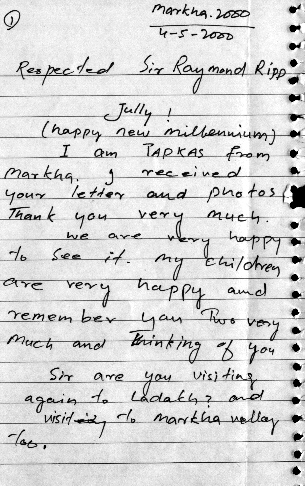 ①
Markha.2000
4-5-2000
Respected Sir Raymond Ripp
Jully!
(happy new millennium)
I am TAPKAS from
Markha. I received
your letter and photos!
Thank you very much.
we are very happy
to see it. my children
are very happy and
remember you Two very
much and Thinking of you
Sir are you visiting
again to Ladakh? and
visit to markha valley
too.